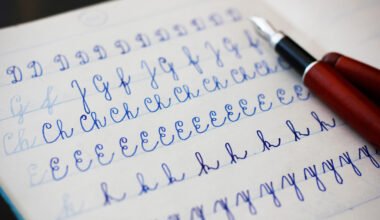 D D D D D D D D D D D D
g f J g f J g f J
Ch Ch Ch Ch Ch Ch Ch Ch Ch
E E E E E E E E E E E E E E E
h h h h h h h h h